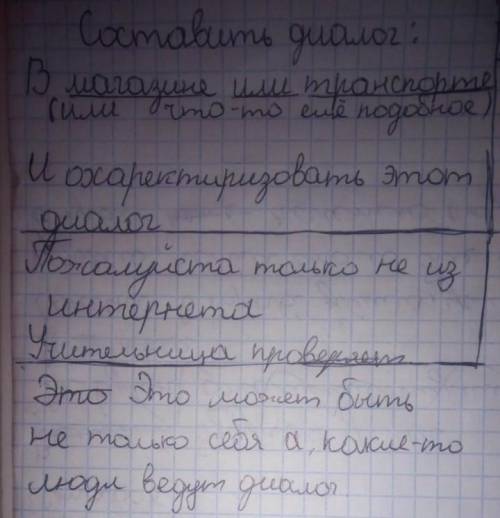 Составить диалог:
В магазине или транспорте
(или что-то ещё подобное)
И охаректиризовать этот
диалог
Пожалуйста только не из
интернета
Учительница проверяет
Это Это может быть
не только себя а, какие-то
люди ведут диалог